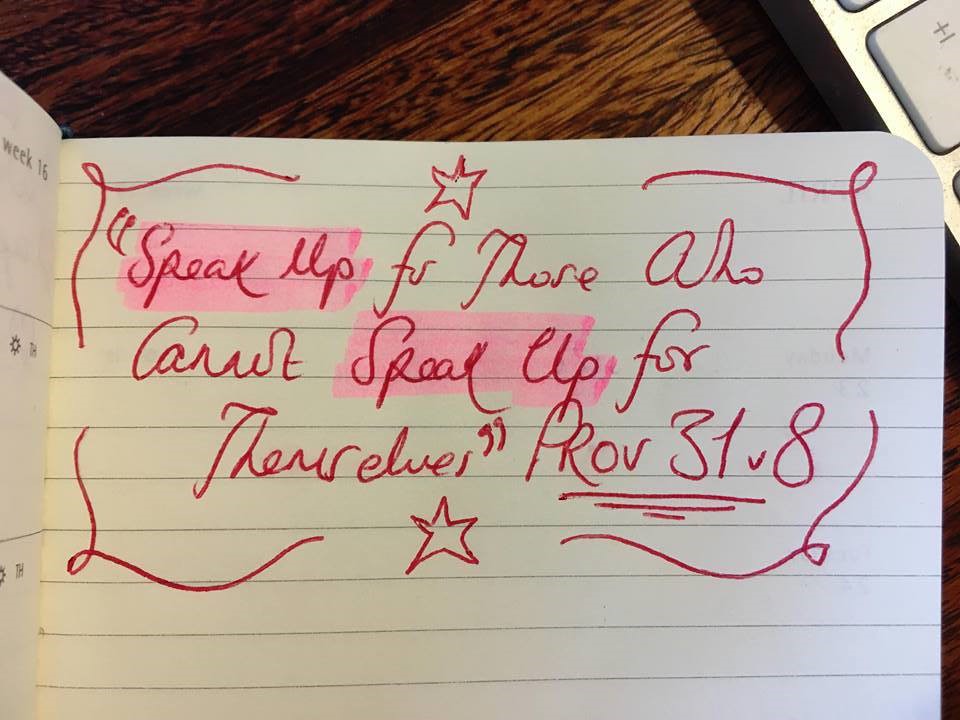 week 16
"Speak Up for Those Who
Cannot Speak Up for
Themselves" PROV 31 v 8
TH
TH